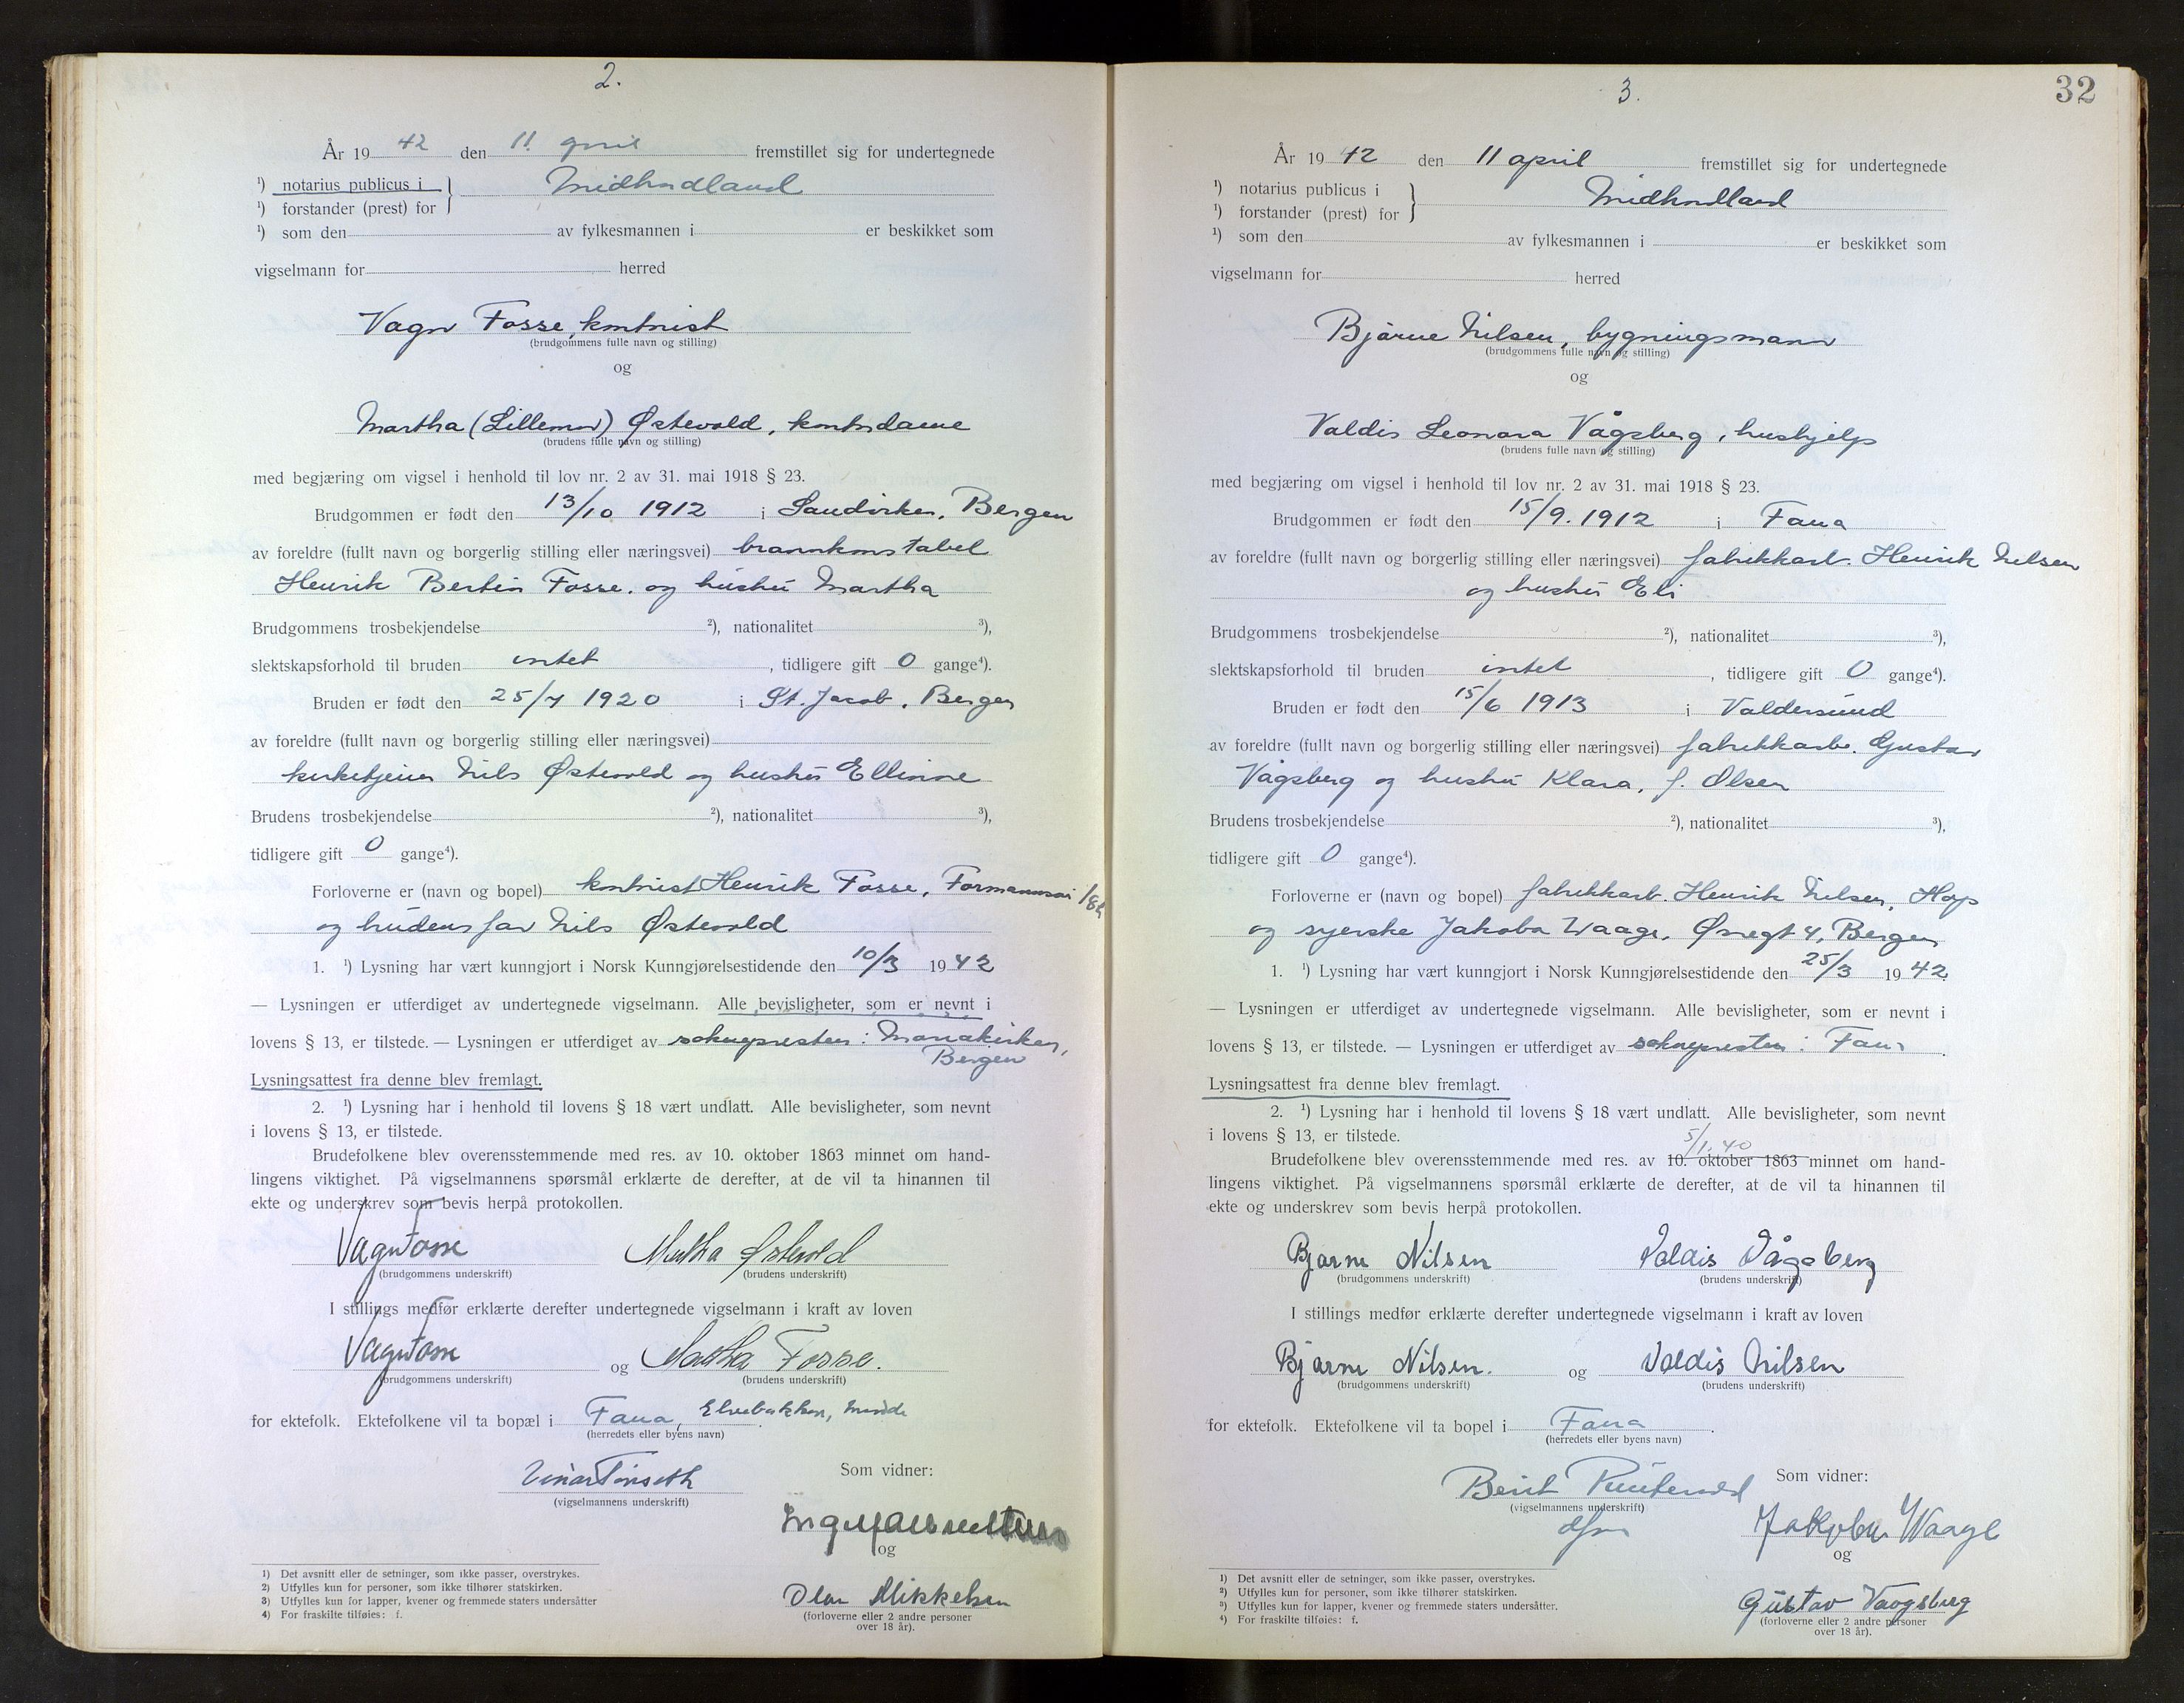 2.
År 19 42 den 11. april fremstillet sig for undertegnede
¹) notarius publicus i } Midhordland
¹) forstander (prest) for
¹) som den av fylkesmannen i er beskikket som
vigselmann for herred
Vagn Fosse, kontorist
(brudgommens fulle navn og stilling)
og
Martha (Lillemor) Østevold, kontordame
(brudens fulle navn og stilling)
med begjæring om vigsel i henhold til lov nr. 2 av 31. mai 1918 § 23.
Brudgommen er født den 13/10 1912 i Sandviken, Bergen
av foreldre (fullt navn og borgerlig stilling eller næringsvei) brannkonstabel
Henrik Bertin Fosse. og hustru Martha
Brudgommens trosbekjendelse ²), nationalitet ³),
slektskapsforhold til bruden intet, tidligere gift 0 gange⁴).
Bruden er født den 25/7 1920 i St. Jacob, Bergen
av foreldre (fullt navn og borgerlig stilling eller næringsvei)
kirketjener Nils Østevold og hustru Ellinore
Brudens trosbekjendelse ²), nationalitet ³),
tidligere gift 0 gange⁴).
Forloverne er (navn og bopel) kontorist Henrik Fosse, Formannsvei
og brudens far Nils Østevold
1. ¹) Lysning har vært kunngjort i Norsk Kunngjørelsestidende den 10/3 19 42
— Lysningen er utferdiget av undertegnede vigselmann. Alle bevisligheter, som er nevnt i
lovens § 13, er tilstede. — Lysningen er utferdiget av sokneprestens: Mariakirken,
Bergen
Lysningsattest fra denne blev fremlagt.
2. ¹) Lysning har i henhold til lovens § 18 vært undlatt. Alle bevisligheter, som nevnt
i lovens § 13, er tilstede.
Brudefolkene blev overensstemmende med res. av 10. oktober 1863 minnet om hand-
lingens viktighet. På vigselmannens spørsmål erklærte de derefter, at de vil ta hinannen til
ekte og underskrev som bevis herpå protokollen.
Vagn Fosse Martha Østevold
(brudgommens underskrift) (brudens underskrift)
I stillings medfør erklærte derefter undertegnede vigselmann i kraft av loven
Vagn Fosse og Martha Fosse.
(brudgommens underskrift) (brudens underskrift)
for ektefolk. Ektefolkene vil ta bopæl i Fana, Elvebakken, Minde
(herredets eller byens navn)
Som vidner:
(vigselmannens underskrift)
og
Olav Mikkelsen
(forloverne eller 2 andre personer
over 18 år).
1) Det avsnitt eller de setninger, som ikke passer, overstrykes.
2) Utfylles kun for personer, som ikke tilhører statskirken.
3) Utfylles kun for lapper, kvener og fremmede staters undersåtter
4) For fraskilte tilføies: f.
3.
32
År 19 42 den 11 april fremstillet sig for undertegnede
¹) notarius publicus i } Midhordland
¹) forstander (prest) for
¹) som den av fylkesmannen i er beskikket som
vigselmann for herred
Bjarne Nilsen, bygningsmann
(brudgommens fulle navn og stilling)
og
Valdis Leonora Vågsberg, hushjelp
(brudens fulle navn og stilling)
med begjæring om vigsel i henhold til lov nr. 2 av 31. mai 1918 § 23.
Brudgommen er født den 15/9. 1912 i Fana
av foreldre (fullt navn og borgerlig stilling eller næringsvei) fabrikkarb. Henrik Nilsen
og hustru Eli
Brudgommens trosbekjendelse ²), nationalitet ³),
slektskapsforhold til bruden intet, tidligere gift 0 gange⁴).
Bruden er født den 15/6 1913 i Valdersund
av foreldre (fullt navn og borgerlig stilling eller næringsvei) fabrikkarb. Gustav
Vågsberg og hustru Klara, f. Olsen
Brudens trosbekjendelse ²), nationalitet ³),
tidligere gift 0 gange⁴).
Forloverne er (navn og bopel) fabrikkarb. Henrik Nilsen, Hop
og syerske Jakoba Waage, Øvregt 4, Bergen
1. ¹) Lysning har vært kunngjort i Norsk Kunngjørelsestidende den 25/3 19 42
— Lysningen er utferdiget av undertegnede vigselmann. Alle bevisligheter, som er nevnt i
lovens § 13, er tilstede. — Lysningen er utferdiget av soknepresten i Fana.
Lysningsattest fra denne blev fremlagt.
2. ¹) Lysning har i henhold til lovens § 18 vært undlatt. Alle bevisligheter, som nevnt
i lovens § 13, er tilstede.
5/1.40
Brudefolkene blev overensstemmende med res. av 10. oktober 1863 minnet om hand-
lingens viktighet. På vigselmannens spørsmål erklærte de derefter, at de vil ta hinannen til
ekte og underskrev som bevis herpå protokollen.
Bjarne Nilsen Valdis Vågsberg
(brudgommens underskrift) (brudens underskrift)
I stillings medfør erklærte derefter undertegnede vigselmann i kraft av loven
Bjarne Nilsen. og Valdis Nilsen
(brudgommens underskrift) (brudens underskrift)
for ektefolk. Ektefolkene vil ta bopel i Fana.
(herredets eller byens navn)
Berit Som vidner:
(vigselmannens underskrift)
Jakoba Waage
og
Gustav Vaagsberg
(forloverne eller 2 andre personer
over 18 år).
1) Det avsnitt eller de setninger, som ikke passer, overstrykes.
2) Utfylles kun for personer, som ikke tilhører statskirken.
3) Utfylles kun for lapper, kvener og fremmede staters undersåtter.
4) For fraskilte tilføies: f.